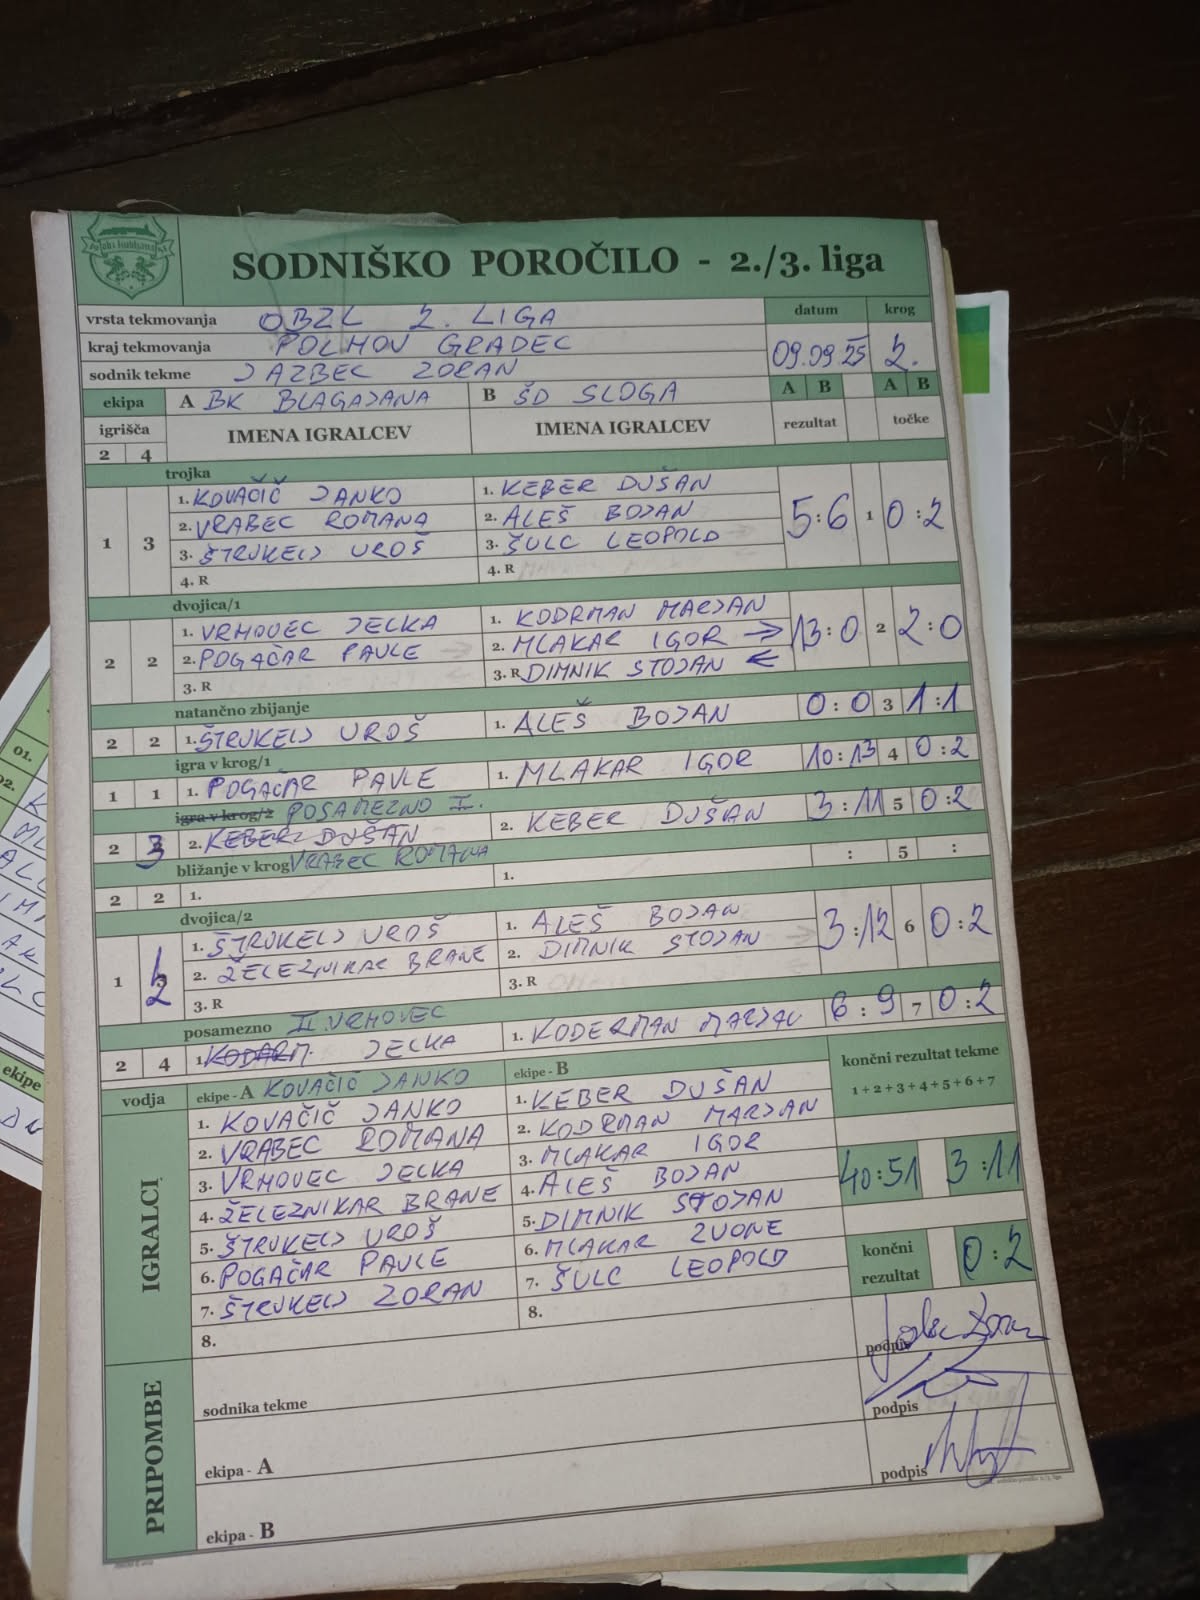 SODNIŠKO POROČILO - 2./3. liga
vrsta tekmovanja OBZL 2. LIGA datum krog
kraj tekmovanja POLHOV GRADEC 09.09.25 2.
sodnik tekme JAZBEC ZORAN
ekipa A BK BLAGAJANA B ŠD SLOGA A B A B
igrišča IMENA IGRALCEV IMENA IGRALCEV rezultat točke
2 4
trojka
1 3 1. KOVAČIČ JANKO 1. KEBER DUŠAN 5:6 1 0:2
2. VRABEC ROMANA 2. ALEŠ BOJAN
3. ŠTRUKELJ UROŠ 3. ŠULC LEOPOLD
4. R 4. R
dvojica/1
2 2 1. VRHOVEC JELKA 1. KODRMAN MARJAN 13:0 2 2:0
2. POGAČAR PAVLE 2. MLAKAR IGOR →
3. R 3. R DIMNIK STOJAN ←
natančno zbijanje
2 2 1. ŠTRUKELJ UROŠ 1. ALEŠ BOJAN 0:0 3 1:1
igra v krog/1
1 1 1. POGAČAR PAVLE 1. MLAKAR IGOR 10:13 4 0:2
igra v krog/2 POSAMEZNO I.
2 3 2. KEBER DUŠAN 2. KEBER DUŠAN 3:11 5 0:2
bližanje v krog VRABEC ROMANA
2 2 1. 1. : 5 :
dvojica/2
1 2 1. ŠTRUKELJ UROŠ 1. ALEŠ BOJAN 3:12 6 0:2
2. ŽELEZNIKAR BRANE 2. DIMNIK STOJAN
3. R 3. R
posamezno II. VRHOVEC
2 4 1. KODARM. JELKA 1. KODERMAN MARJAN 6:9 7 0:2
vodja ekipe - A KOVAČIČ JANKO ekipe - B končni rezultat tekme
1+2+3+4+5+6+7
IGRALCI
1. KOVAČIČ JANKO 1. KEBER DUŠAN
2. VRABEC ROMANA 2. KODRMAN MARJAN
3. VRHOVEC JELKA 3. MLAKAR IGOR 40:51 3:11
4. ŽELEZNIKAR BRANE 4. ALEŠ BOJAN
5. ŠTRUKELJ UROŠ 5. DIMNIK STOJAN
6. POGAČAR PAVLE 6. MLAKAR ZVONE končni rezultat 0:2
7. ŠTRUKELJ ZORAN 7. ŠULC LEOPOLD
8. 8.
PRIPOMBE
sodnika tekme podpis
ekipa - A podpis
ekipa - B podpis